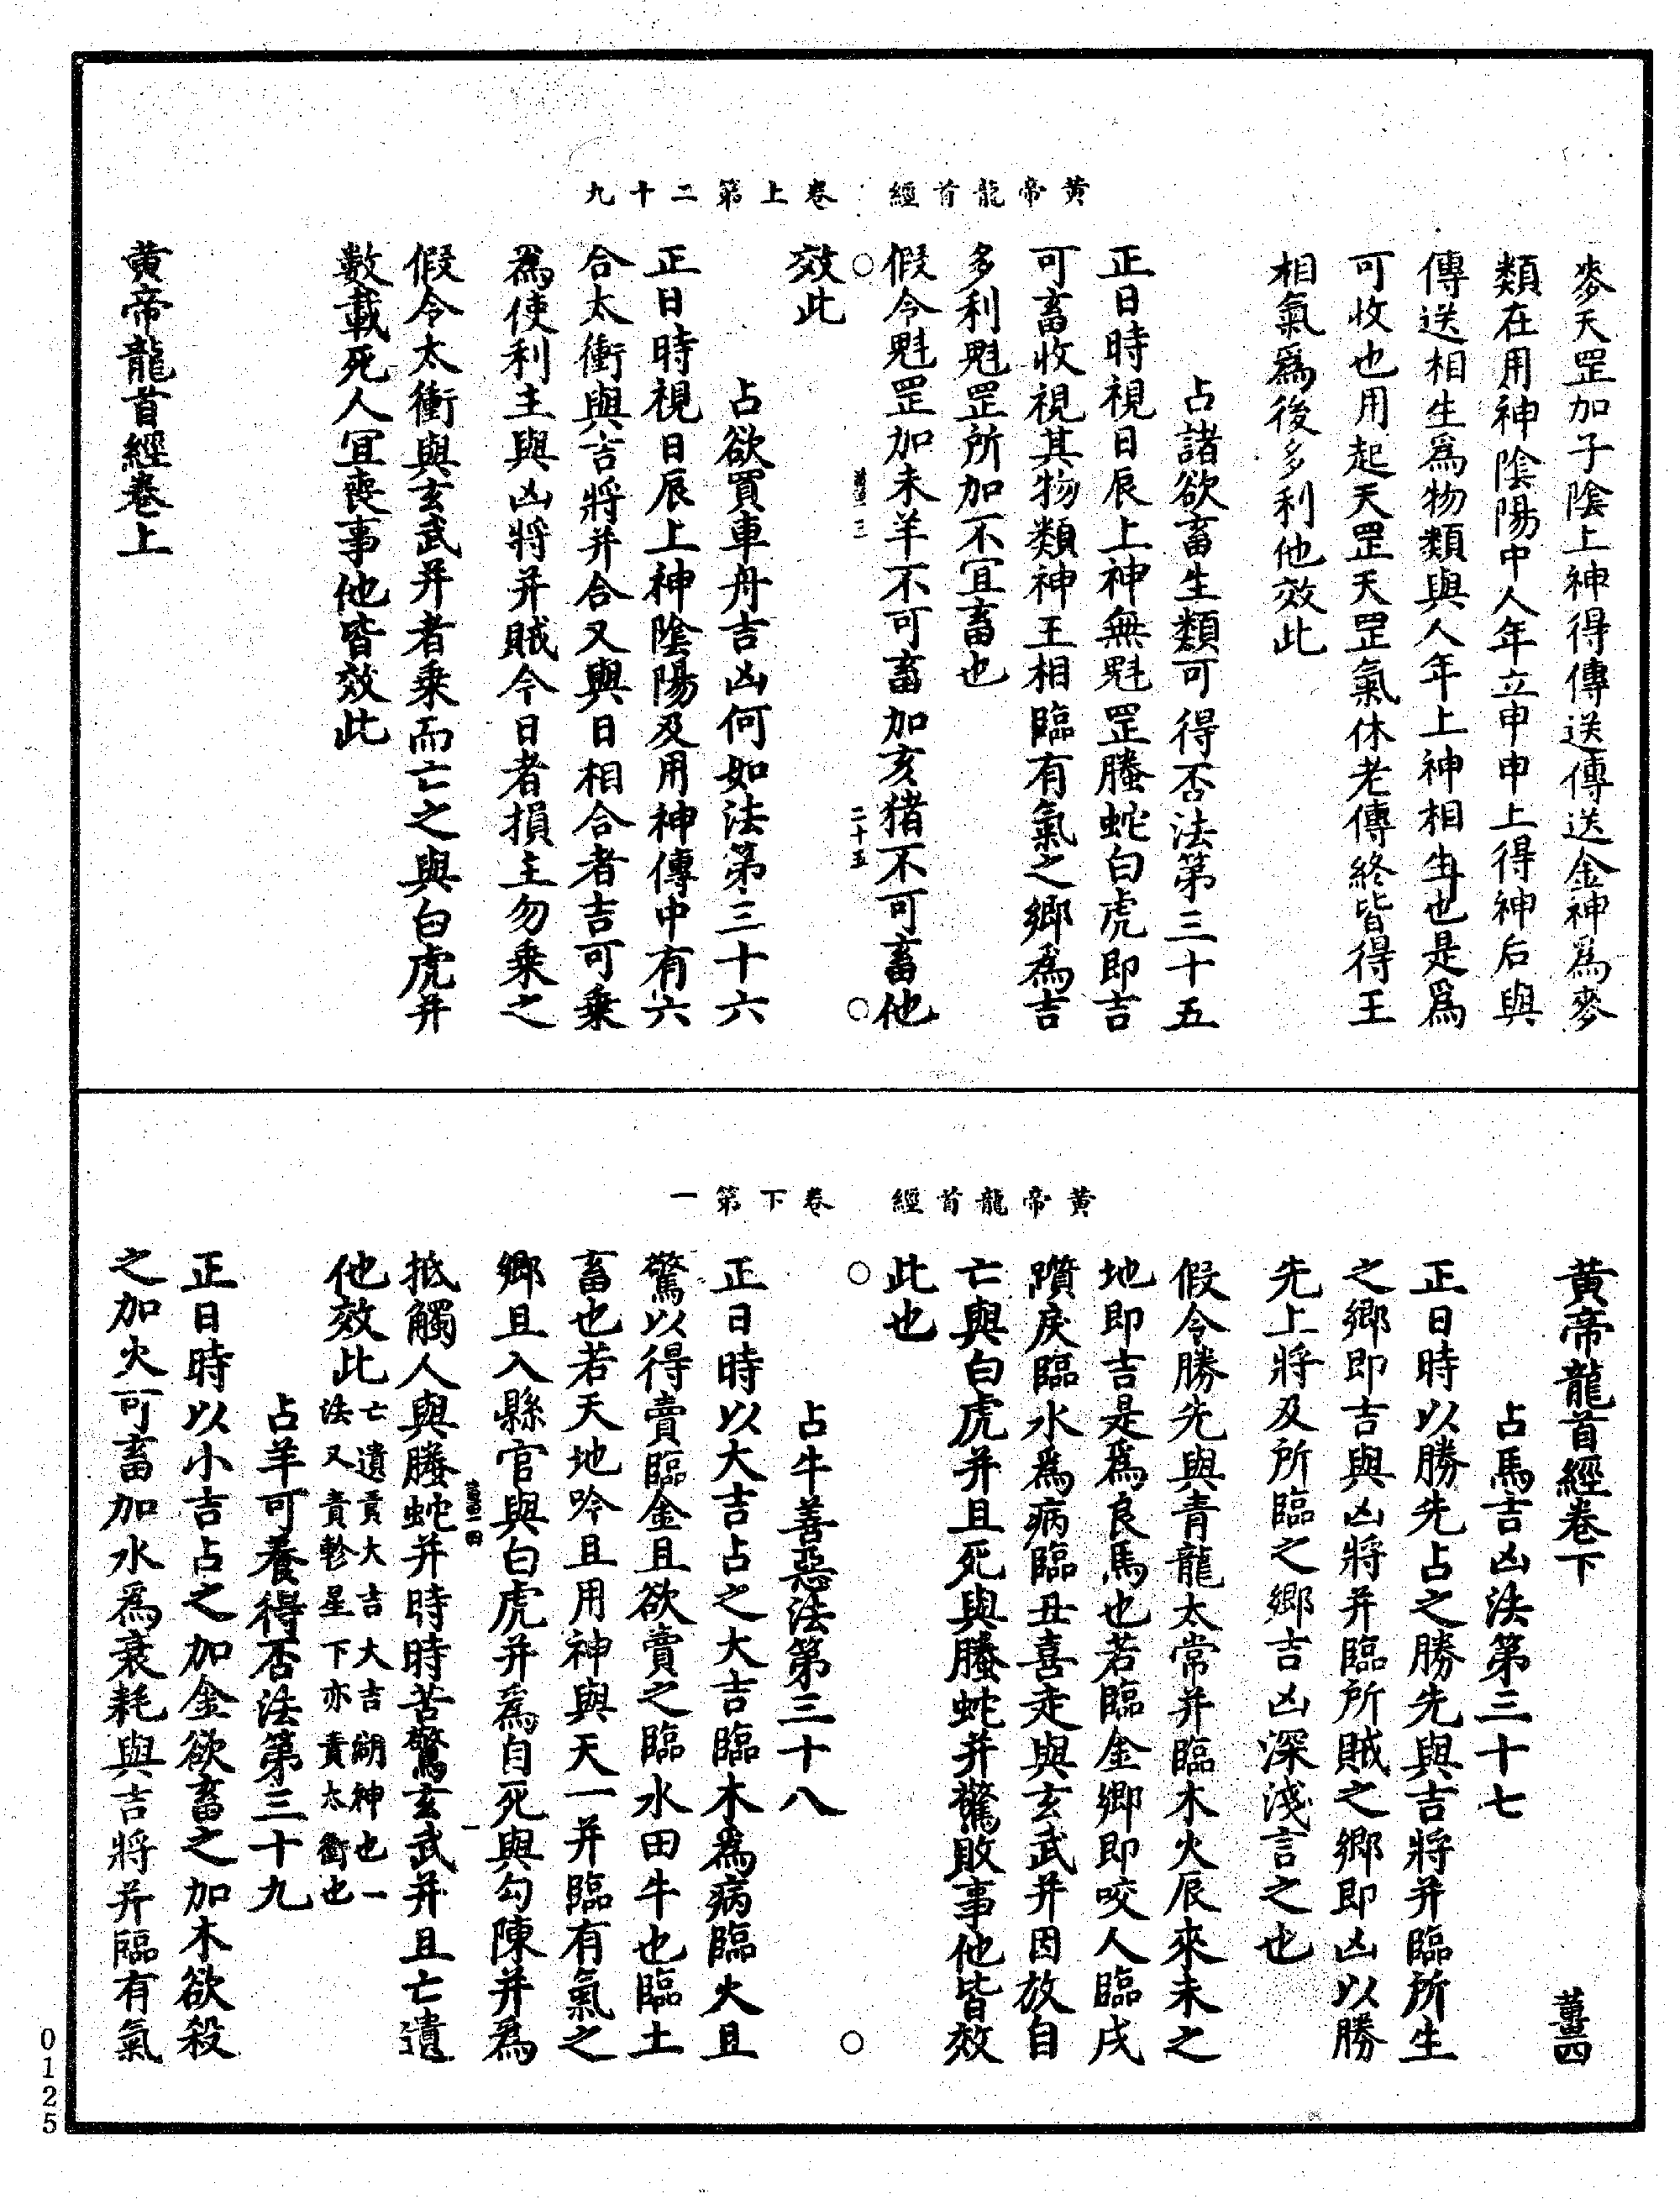 黃帝龍首經　卷上第二十九
麥天罡加子陰上神得傳送傳送金神爲麥
類在用神陰陽中人年立申申上得神后與
傳送相生爲物類與人年上神相生也是爲
可收也用起天罡天罡氣休老傳終皆得王
相氣爲後多利他效此
占諸欲畜生類可得否法第三十五
正日時視日辰上神無魁罡螣蛇白虎即吉
可畜收視其物類神王相臨有氣之鄉爲吉
多利魁罡所加不宜畜也
假令魁罡加未羊不可畜加亥猪不可畜他
二十五
效此
占欲買車舟吉凶何如法第三十六
正日時視日辰上神陰陽及用神傳中有六
合太衝與吉將并合又與日相合者吉可乗
爲使利主與凶將并賊今日者損主勿乗之
假令太衝與玄武并者乗而亡之與白虎并
數載死人宜喪事他皆效此
黃帝龍首經卷上
黃帝龍首經　卷下第一
黃帝龍首經卷下　薑四
占馬吉凶法第三十七
正日時以勝先占之勝先與吉將并臨所生
之鄉即吉與凶將并臨所賊之鄉即凶以勝
先上將及所臨之鄉吉凶深淺言之也
假令勝先與青龍太常并臨木火辰來未之
地即吉是爲良馬也若臨金鄉即咬人臨戌
躓戾臨水爲病臨丑喜走與玄武并因放自
亡與白虎并且死與螣蛇并驚敗事他皆效
此也
占牛善惡法第三十八
正日時以大吉占之大吉臨木爲病臨火且
驚以得賣臨金且欲賣之臨水田牛也臨土
畜也若天地吟且用神與天一并臨有氣之
鄉且入縣官與白虎并爲自死與勾陳并爲
一
抵觸人與螣蛇并時時苦驚玄武并且亡遺
他效此亡遺責大吉大吉嗣神也一
法又責軫星下亦責太衝也
占羊可養得否法第三十九
正日時以小吉占之加金欲畜之加木欲殺
之加火可畜加水爲衰耗與吉將并臨有氣
0125